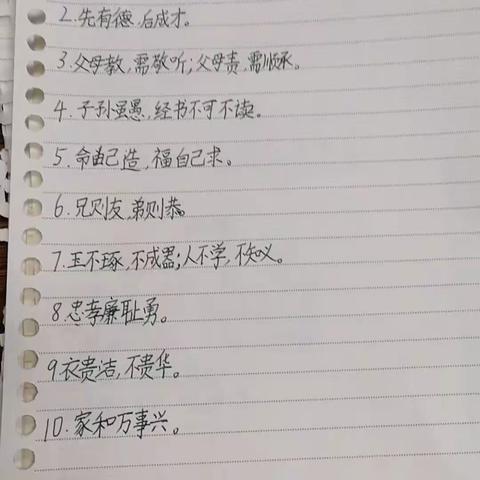 2.先有德.后成才。
3.父母教,需敬听;父母责,需顺承。
4.子孙虽愚,经书不可不读。
5.命由己造,福自己求。
6.兄则友,弟则恭。
7.玉不琢,不成器;人不学,不知义。
8忠孝廉耻勇。
9衣贵洁,不贵华。
10.家和万事兴。